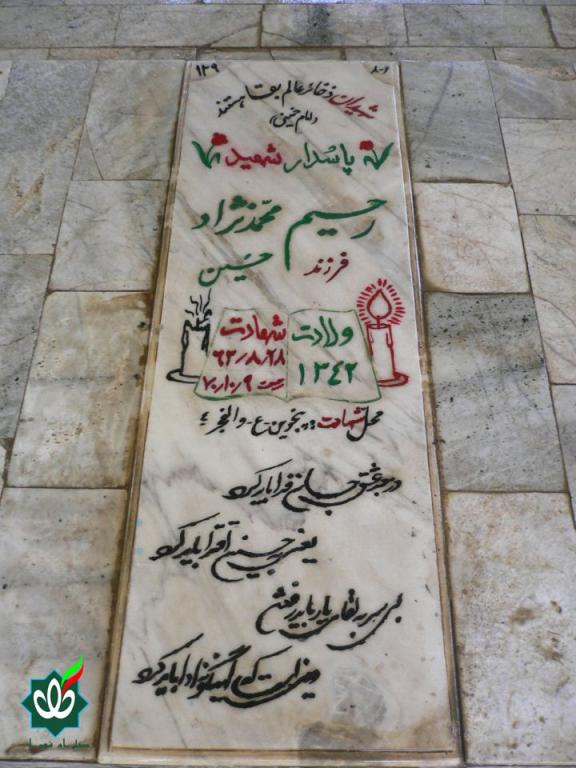 ۱۲۹
۸۰۱
شهیدان ذخائر عالم بقا هستند
«امام خمینی»
پاسدار شهید
رحیم محمدنژاد
فرزند حسین
ولادت
۱۳۴۲
شهادت
۶۲/۸/۲۸
۷۰/۱۰/۹
محل شهادت: پنجوین-ع-والفجر ۴
در عشق حسین جان فدا باید کرد
یعنی به حسین اقتدا باید کرد
بی سر به لقای یار باید رفتن